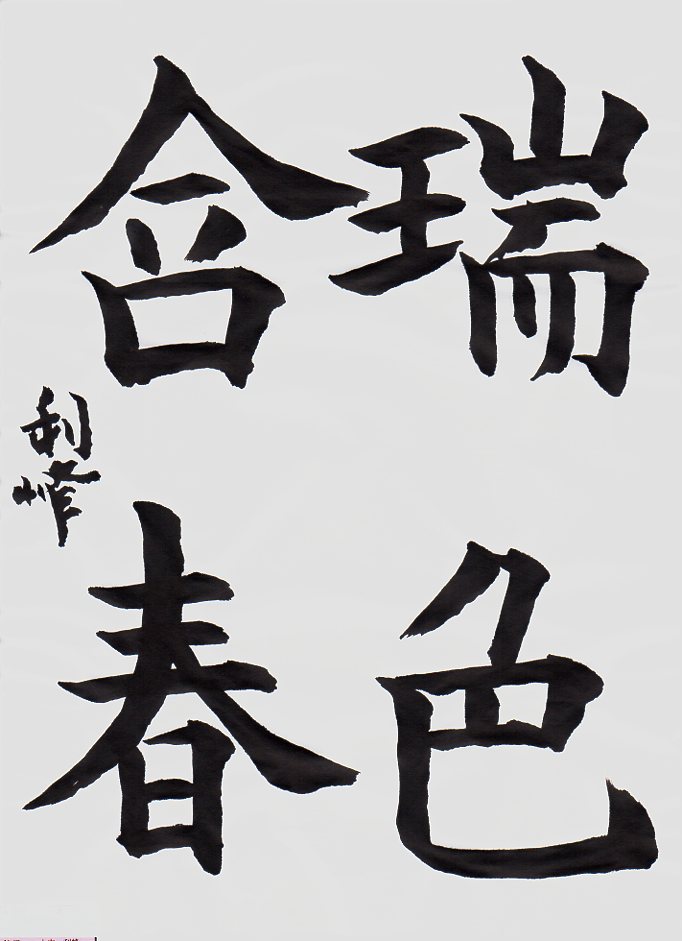 瑞色
含春
利峰